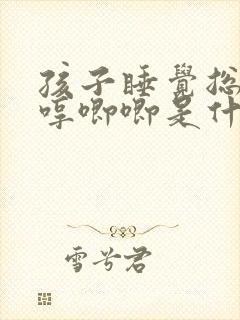 孩子睡覺总
哼唧唧是什
雪兮君